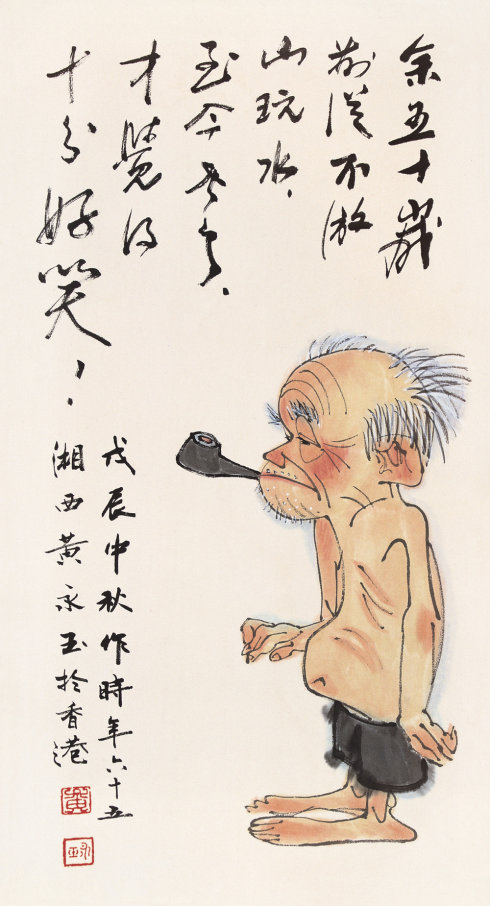 余五十歲
前從不游
山玩水、
至今老了、
才覺得
十分好笑、、
戊辰中秋作時年六十五
湘西黃永玉於香港
黃
永玉